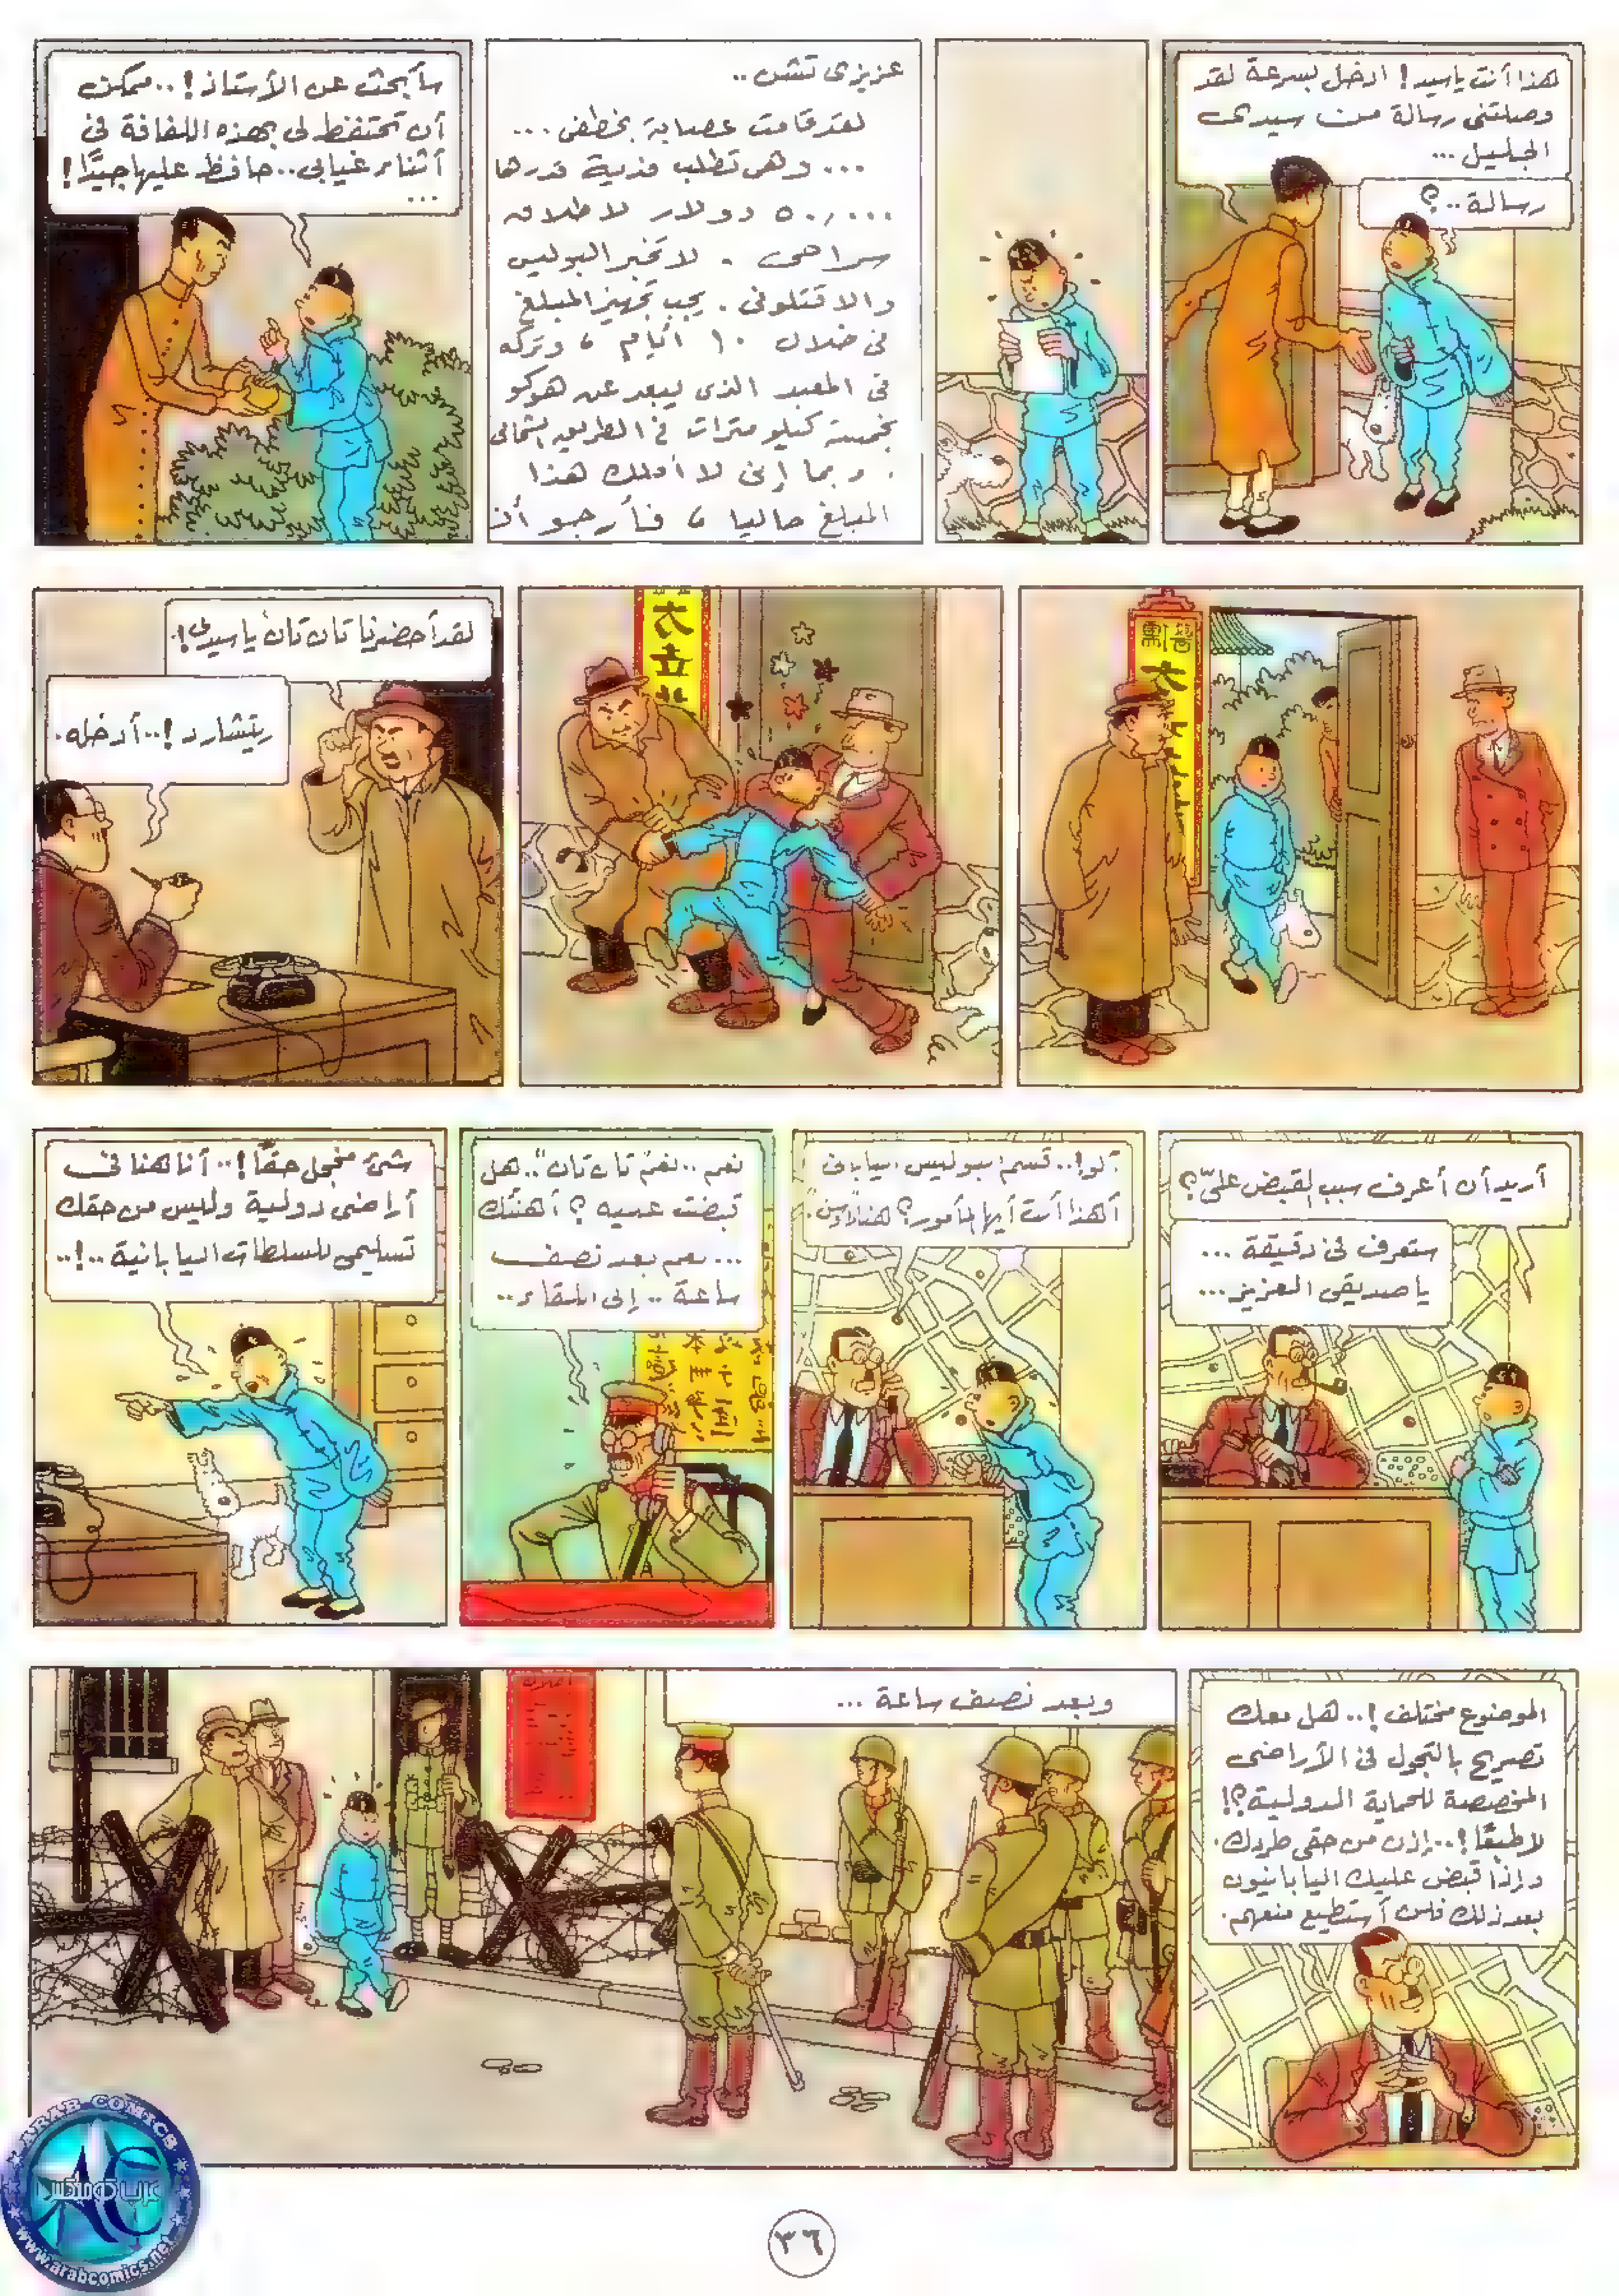 هذا أنت ياسيد! ادخل بسرعة لقد
وصلتنى رسالة من سيدى
الجليل ...
رسالة..؟
عزيزى تشن ..
لقد قامت عصابة بخطفى ...
... وهى تطلب فدية قدرها
٥٠,٠٠٠ دولار لاطلاق
سراحى . لا تخبر البوليس
والا قتلونى . يجب تجهيز المبلغ
فى خلال ١٠ أيام ، وتركه
فى المعبد الذى يبعد عن هوكو
بخمسة كيلو مترات فى الطريق الشمالى
. وبما إنى لا أملك هذا
المبلغ حاليا ، فأرجو أن
سأبحث عن الأستاذ!..ممكن
أن تحتفظ لى بهذه اللفافة فى
أثناء غيابى..حافظ عليها جيدًا!
...
لقد أحضرنا تان تان ياسيدى!.
ريتشارد!..أدخله.
أريد أن أعرف سبب القبض علىّ؟
ستعرف فى دقيقة ...
يا صديقى العزيز...
آلو!..قسم البوليس اليابانى
أهذا أنت أيها المأمور؟ هنا "داوسن".
نعم..نعم "تان تان"..هل
قبضت عليه؟ أهنئك
... نعم بعد نصف
ساعة .. إلى اللقاء..
شئ مخجل حقًا!..أنا هنا فى
أراضى دولية وليس من حقك
تسليمى للسلطات اليابانية ..!..
الموضوع مختلف!..هل معك
تصريح بالتجول فى الأراضى
المخصصة للحماية الدولية؟!
لا طبعًا!..إذن من حقى طردك.
وإذا قبض عليك اليابانيون
بعد ذلك فلن أستطيع منعهم.
وبعد نصف ساعة ...
٣٦
ARAB COMICS
عرب كومكس
www.arabcomics.net